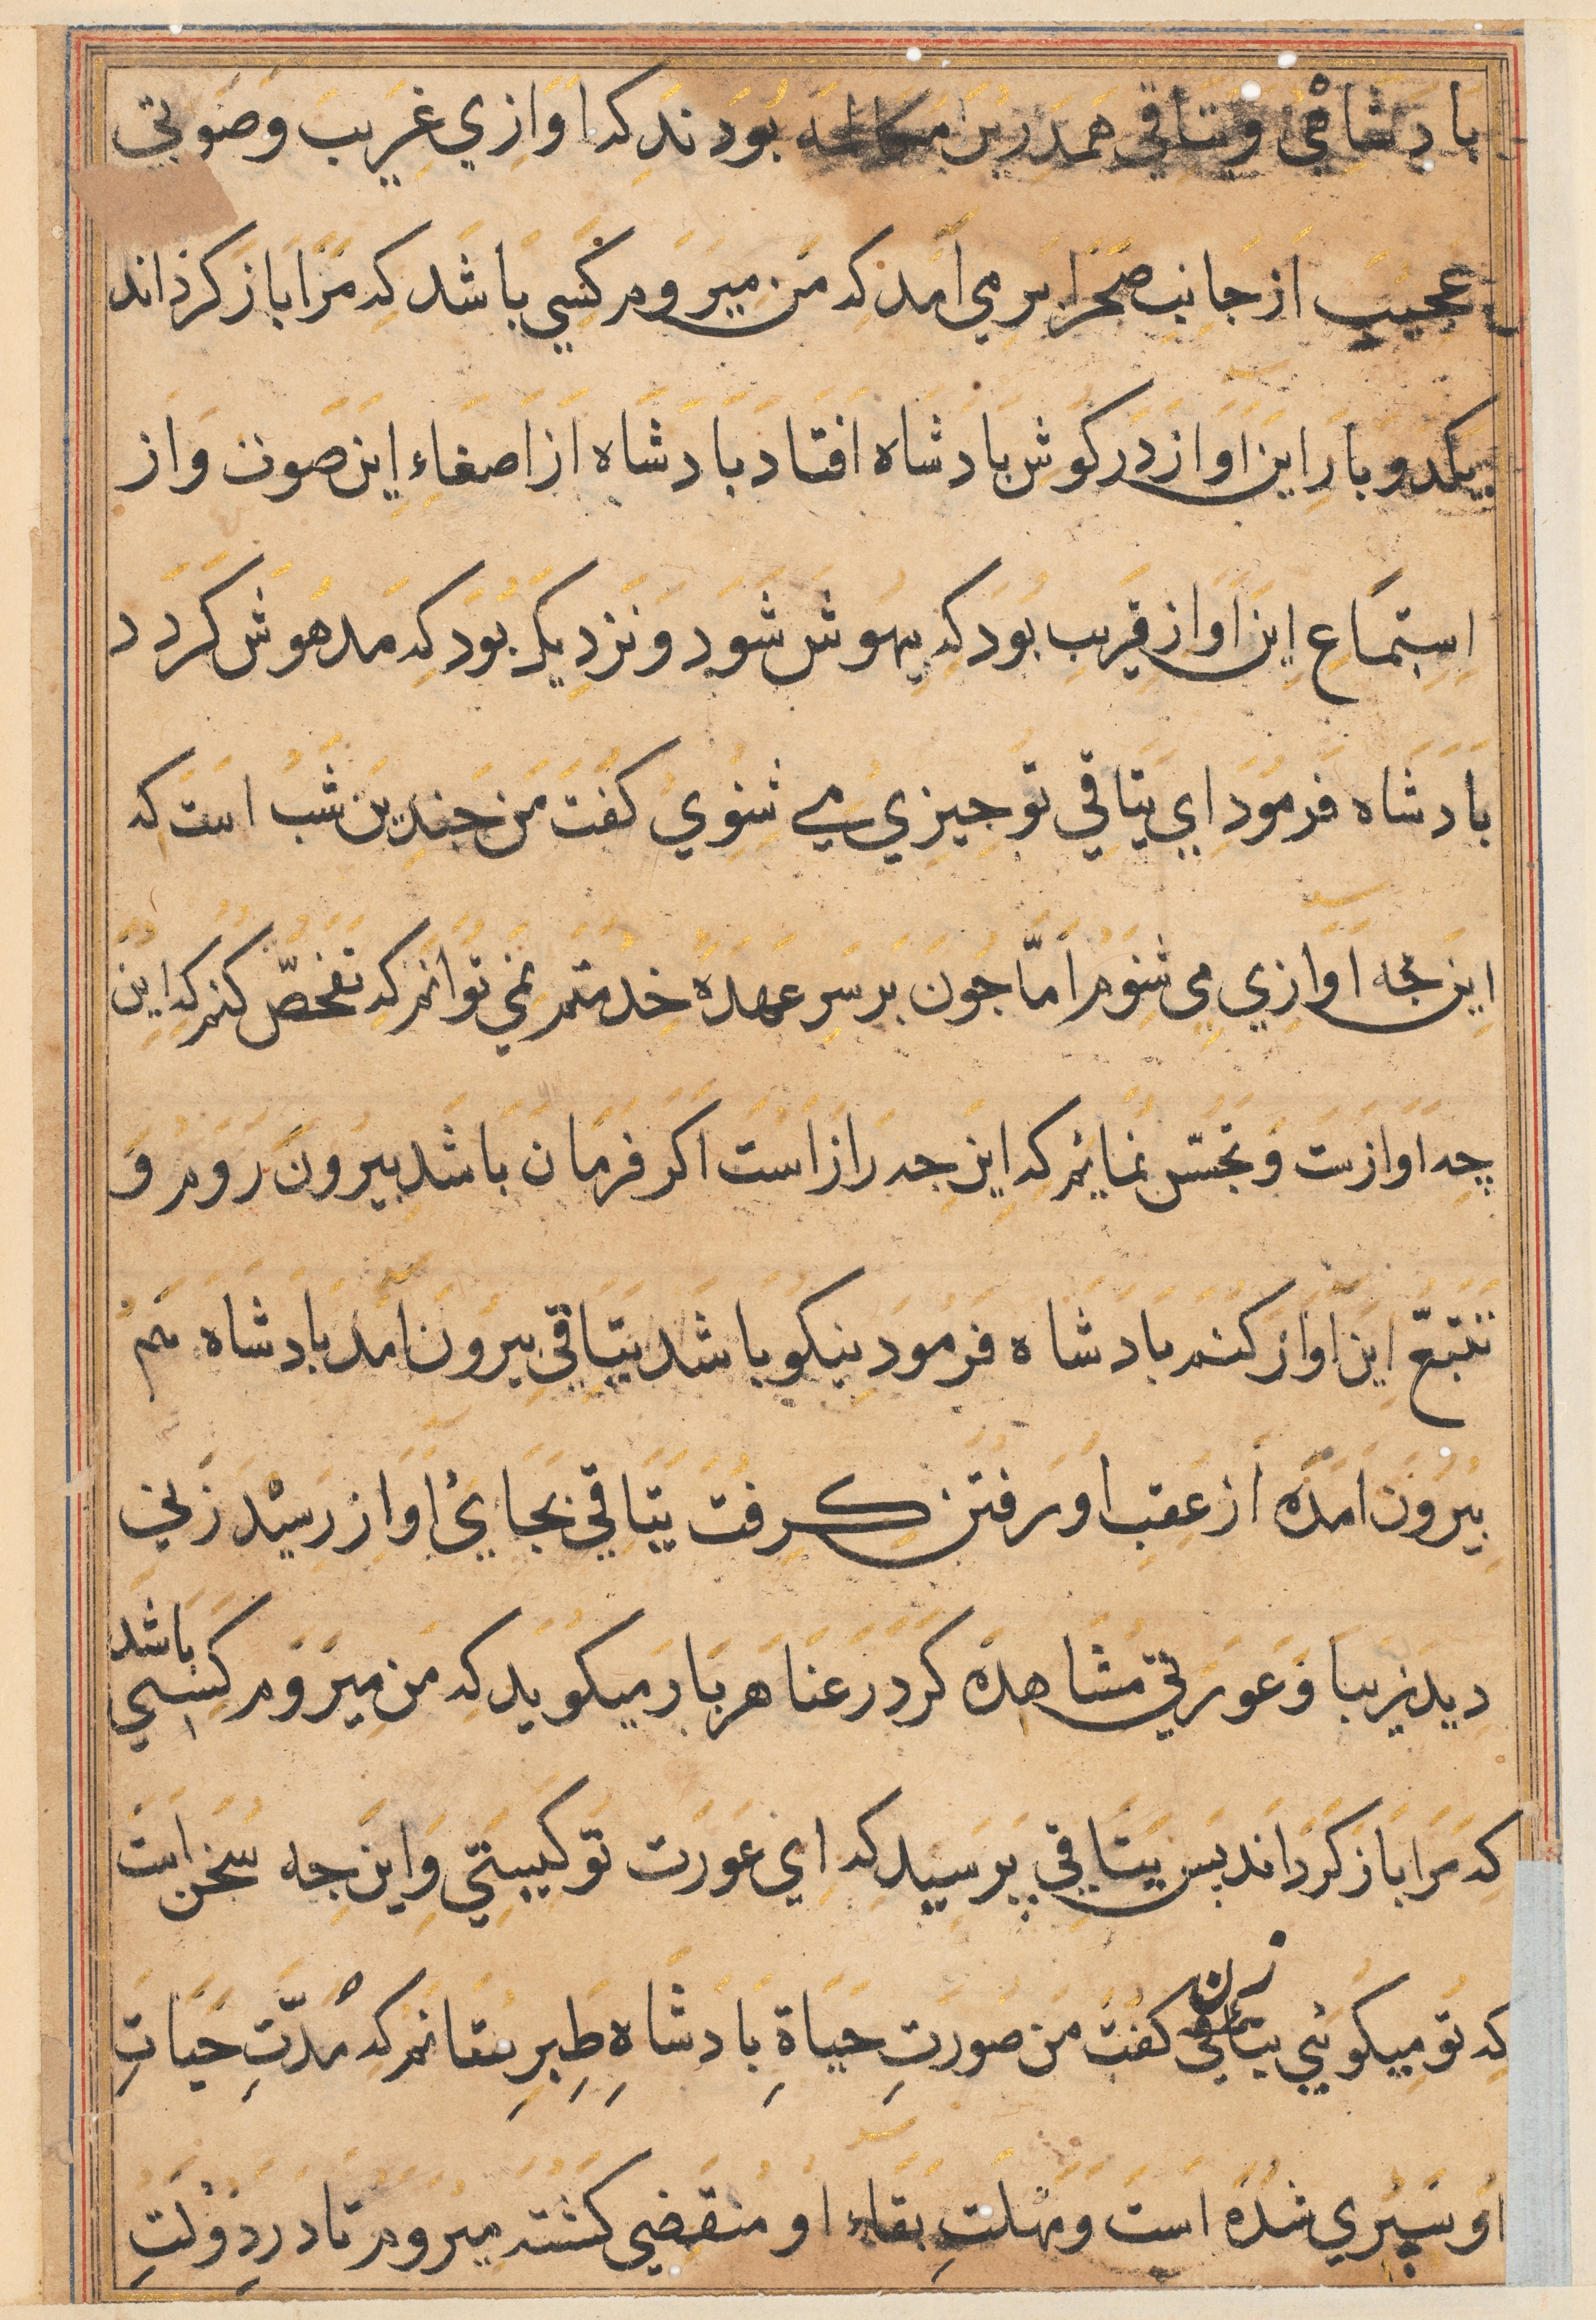 بادشاهی و یتاقی همدرین مکالمه بودند که اوازی غریب و صوتی
عجیب از جانب صحرا بر می امد که من میروم کسی باشد که مرا باز کرداند
یکدو بار این اواز در کوش بادشاه افتاد بادشاه از اصغاء این صوت و از
استماع این اواز قریب بود که بیهوش شود و نزدیک بود که مدهوش کردد
بادشاه فرمود ای یتاقی تو جیزی می شنوی کفت من جندین شب است که
این جه اوازی می شنوم اما جون بر سر عهده خدمتم نمی توانم که تفحص کنم که این
چه اوازست و تجسس نمایم که این جه رازاست اکر فرمان باشد بیرون روم و
تتبع این اواز کنم بادشاه فرمود نیکو باشد یتاقی بیرون امد بادشاه هم
بیرون امده از عقب او رفتن کرفت یتاقی بجایی اواز رسید زنی
دید زیبا و عورتی مشاهده کرد رعنا هر بار میکوید که من میروم کسی باشد
که مرا باز کرداند بس یتاقی پرسید که ای عورت تو کیستی و این جه سخن است
که تو میکویی زن کفت من صورت حیاة بادشاه طبرستانم که مدت حیات
او سپری شده است و مهلت بقاء او منقضی کشته میروم تا در دولت